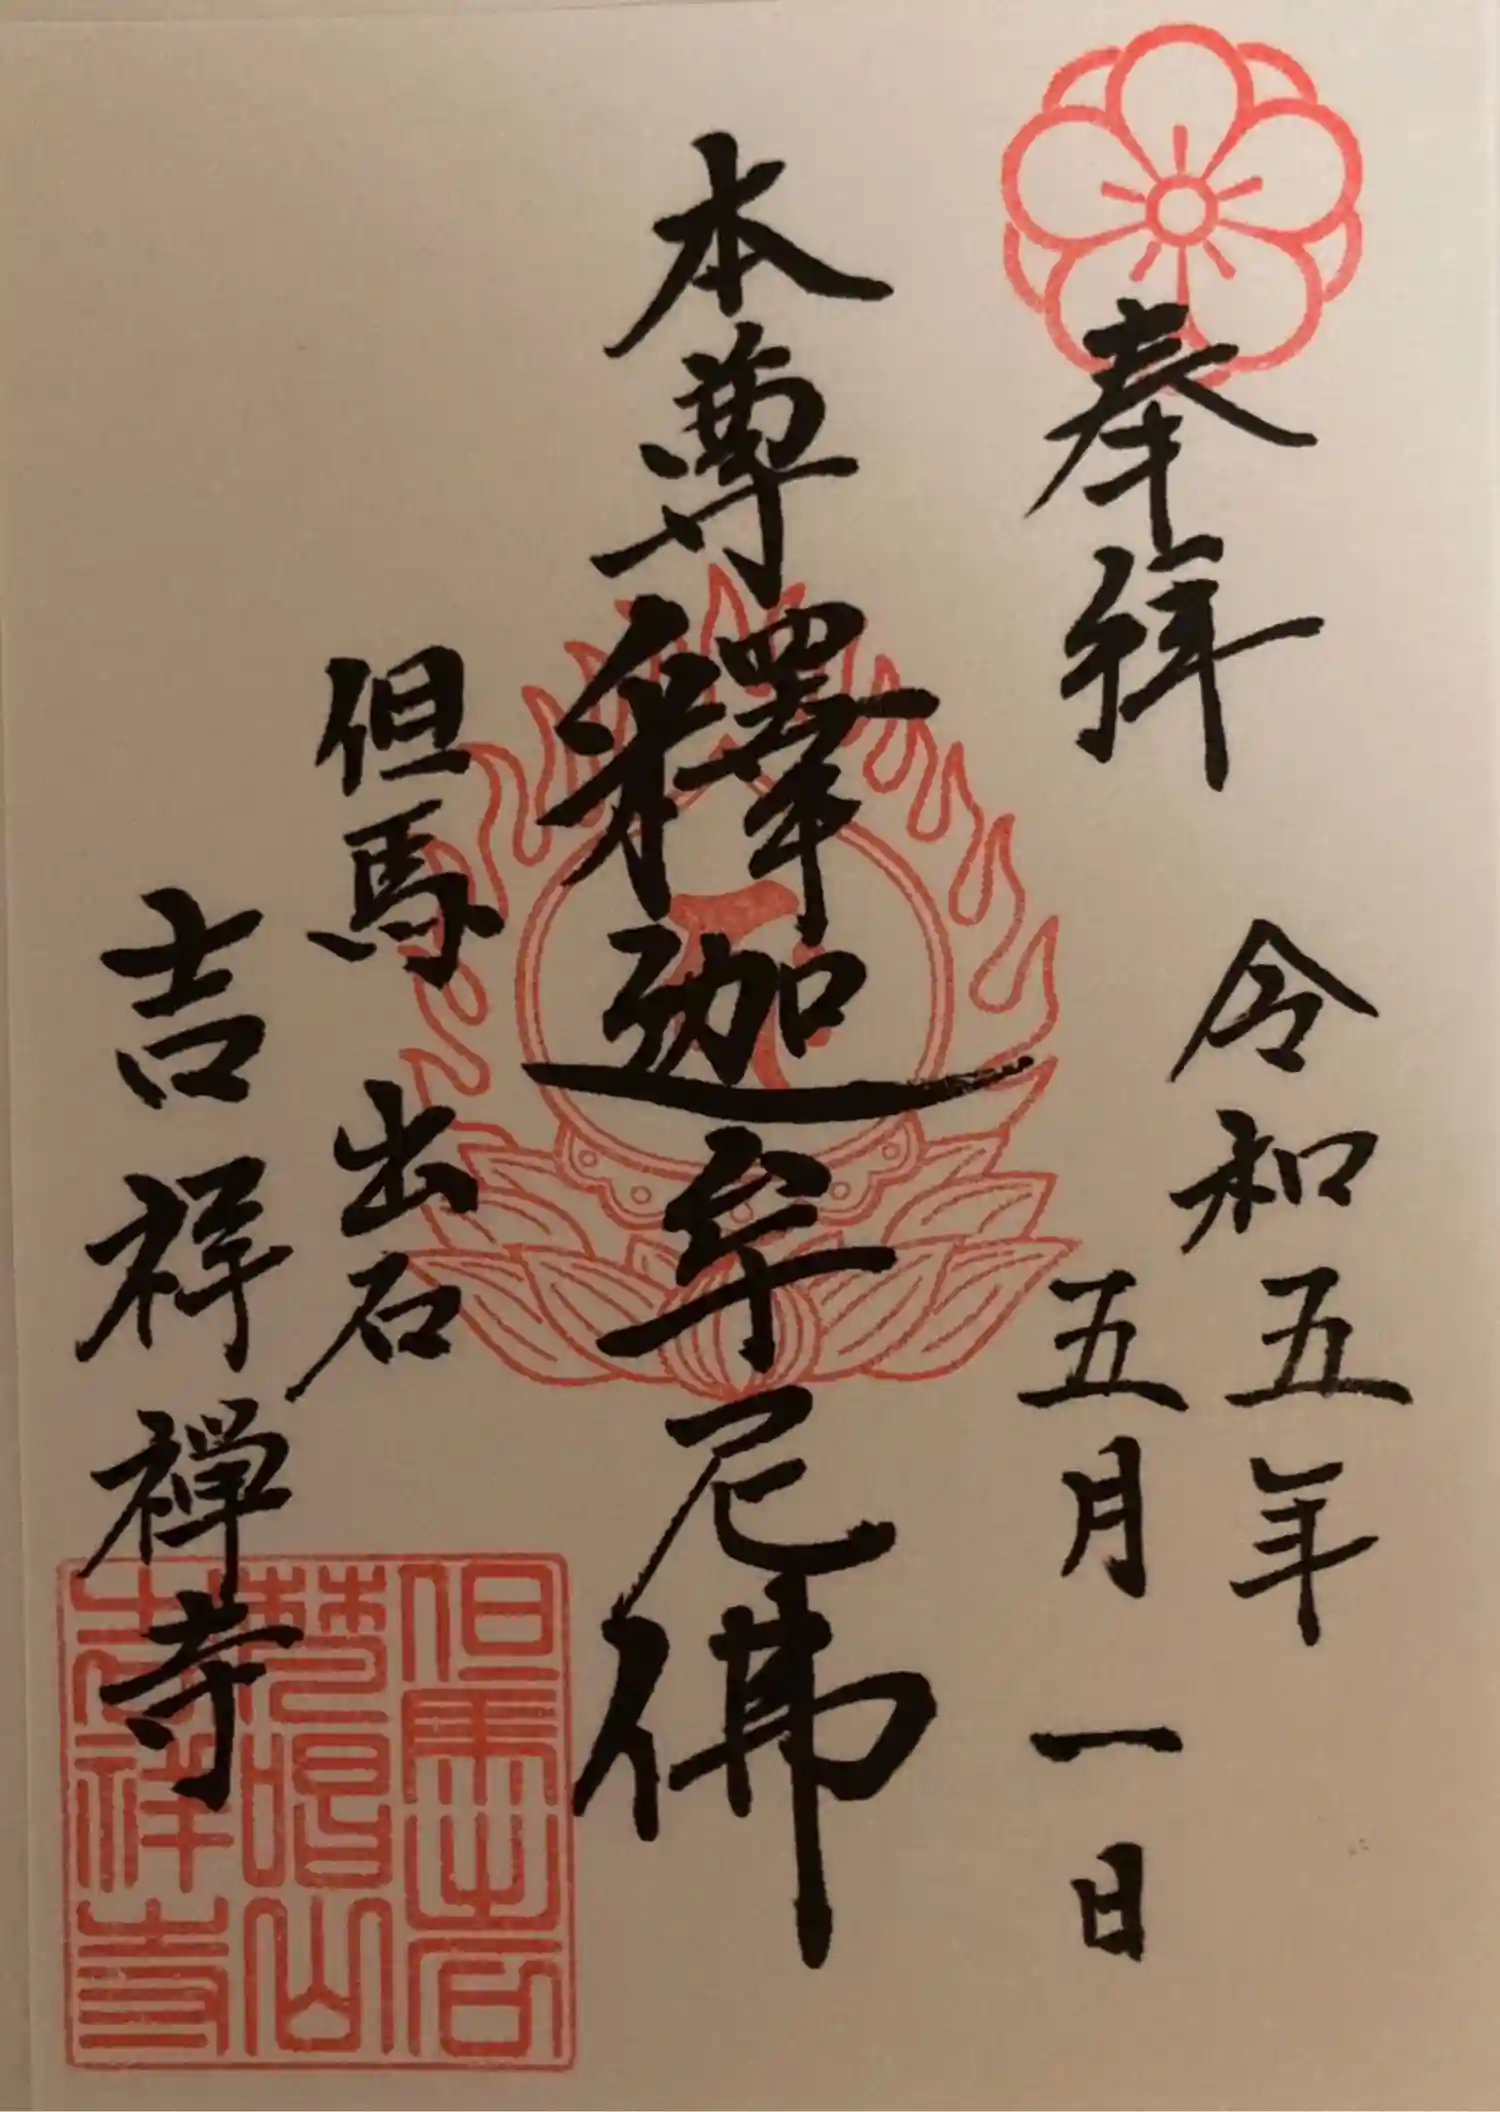 奉拝
令和五年
五月一日
本尊釋迦牟尼佛
但馬出石
吉祥禅寺
但馬出石
吉祥寺